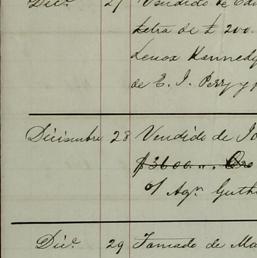 Dic.e 27 Vendido de
letra de £ 200.
Lenox Kennedy
de E. J. Perry y
Diciembre 28 Vendido de Jo
$3600.,, Oro
o/ Agn Guth
Dic.e 29 Tomado de Ma